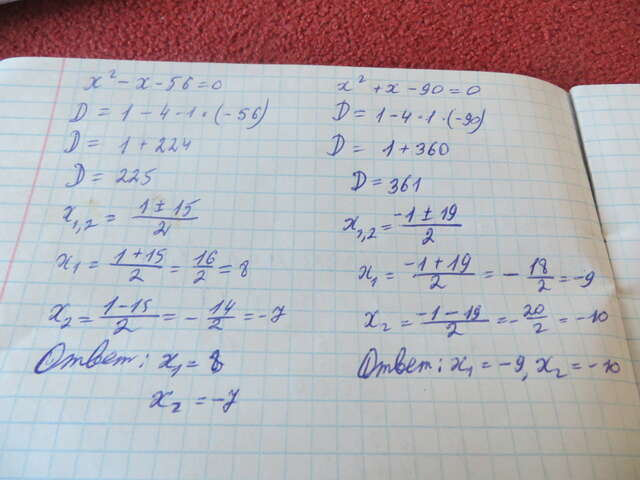 x² - x - 56 = 0
D = 1 - 4 · 1 · (-56)
D = 1 + 224
D = 225
x₁,₂ = (1 ± 15)/2
x₁ = (1 + 15)/2 = 16/2 = 8
x₂ = (1 - 15)/2 = - 14/2 = -7
Ответ: x₁ = 8
x₂ = -7
x² + x - 90 = 0
D = 1 - 4 · 1 · (-90)
D = 1 + 360
D = 361
x₁,₂ = (-1 ± 19)/2
x₁ = (-1 + 19)/2 = - 18/2 = -9
x₂ = (-1 - 19)/2 = - 20/2 = -10
Ответ: x₁ = -9, x₂ = -10